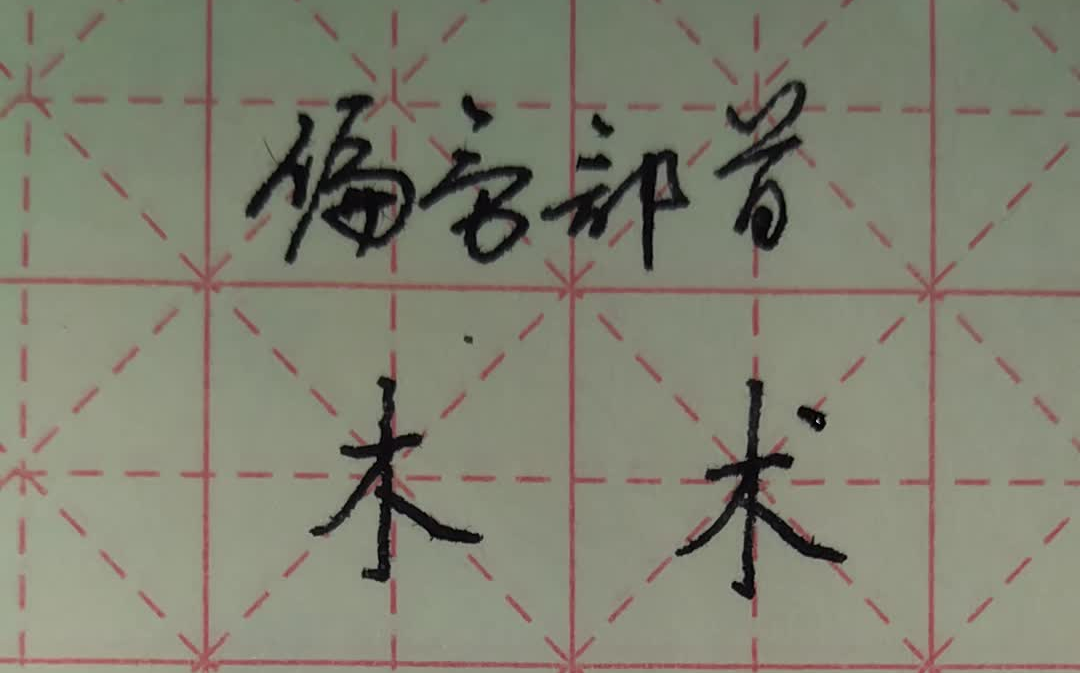 偏旁部首
木 术